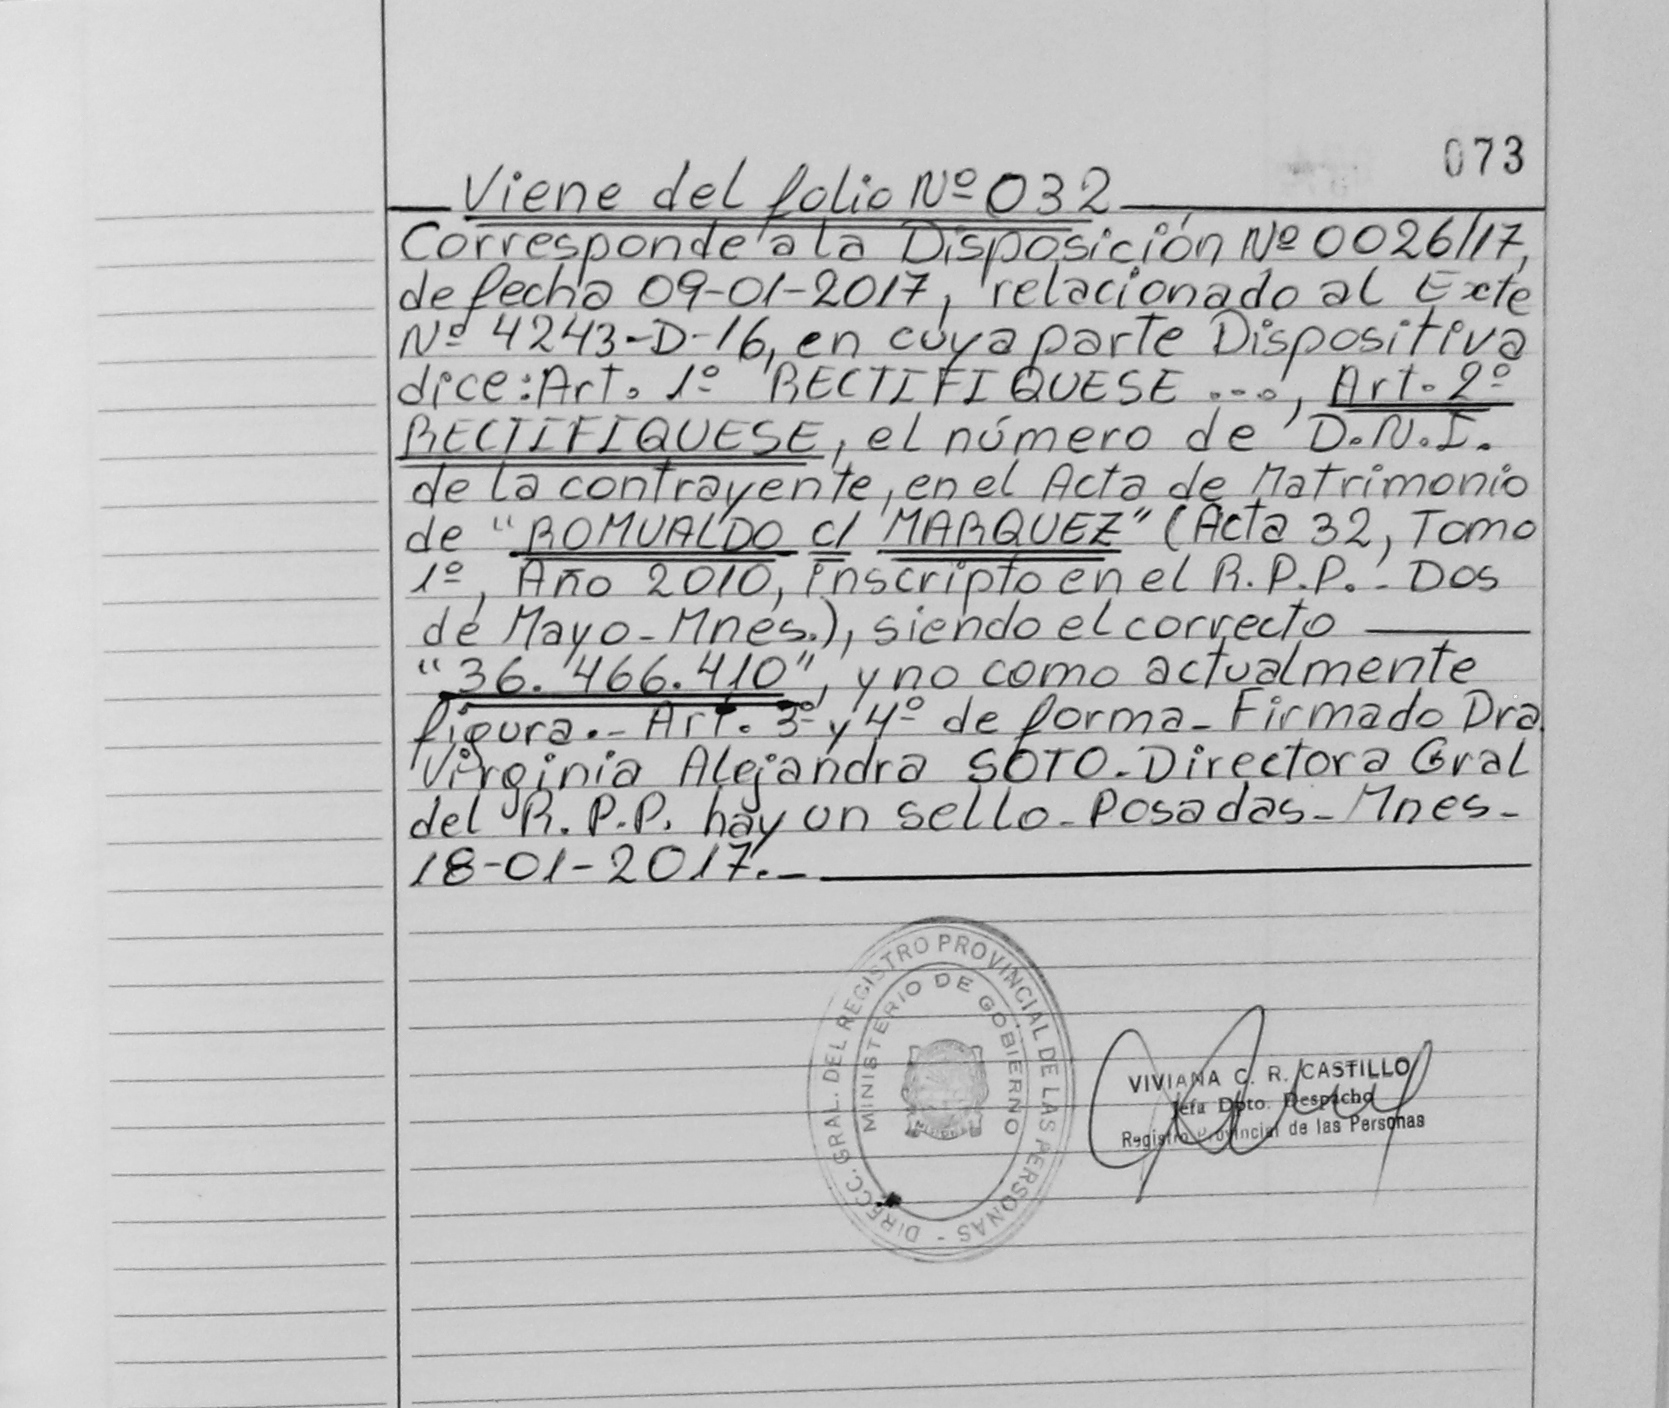 073
Viene del folio Nº 032
Corresponde a la Disposición Nº 0026/17,
de fecha 09-01-2017, relacionado al Exte
Nº 4243-D-16, en cuya parte Dispositiva
dice: Art. 1º RECTIFIQUESE ..., Art. 2º
RECTIFIQUESE, el número de D.N.I.
de la contrayente, en el Acta de Matrimonio
de "ROMUALDO c/ MARQUEZ" (Acta 32, Tomo
1º, Año 2010, inscripto en el R.P.P. - Dos
de Mayo - Mnes.), siendo el correcto
"36.466.410", y no como actualmente
figura.- Art. 3º y 4º de forma - Firmado Dra.
Virginia Alejandra SOTO - Directora Gral
del R.P.P. hay un sello - Posadas - Mnes -
18-01-2017.-
DIRECC. GRAL. DEL REGISTRO PROVINCIAL DE LAS PERSONAS -
MINISTERIO DE GOBIERNO
VIVIANA C. R. CASTILLO
Jefa Dpto. Despacho
Registro Provincial de las Personas